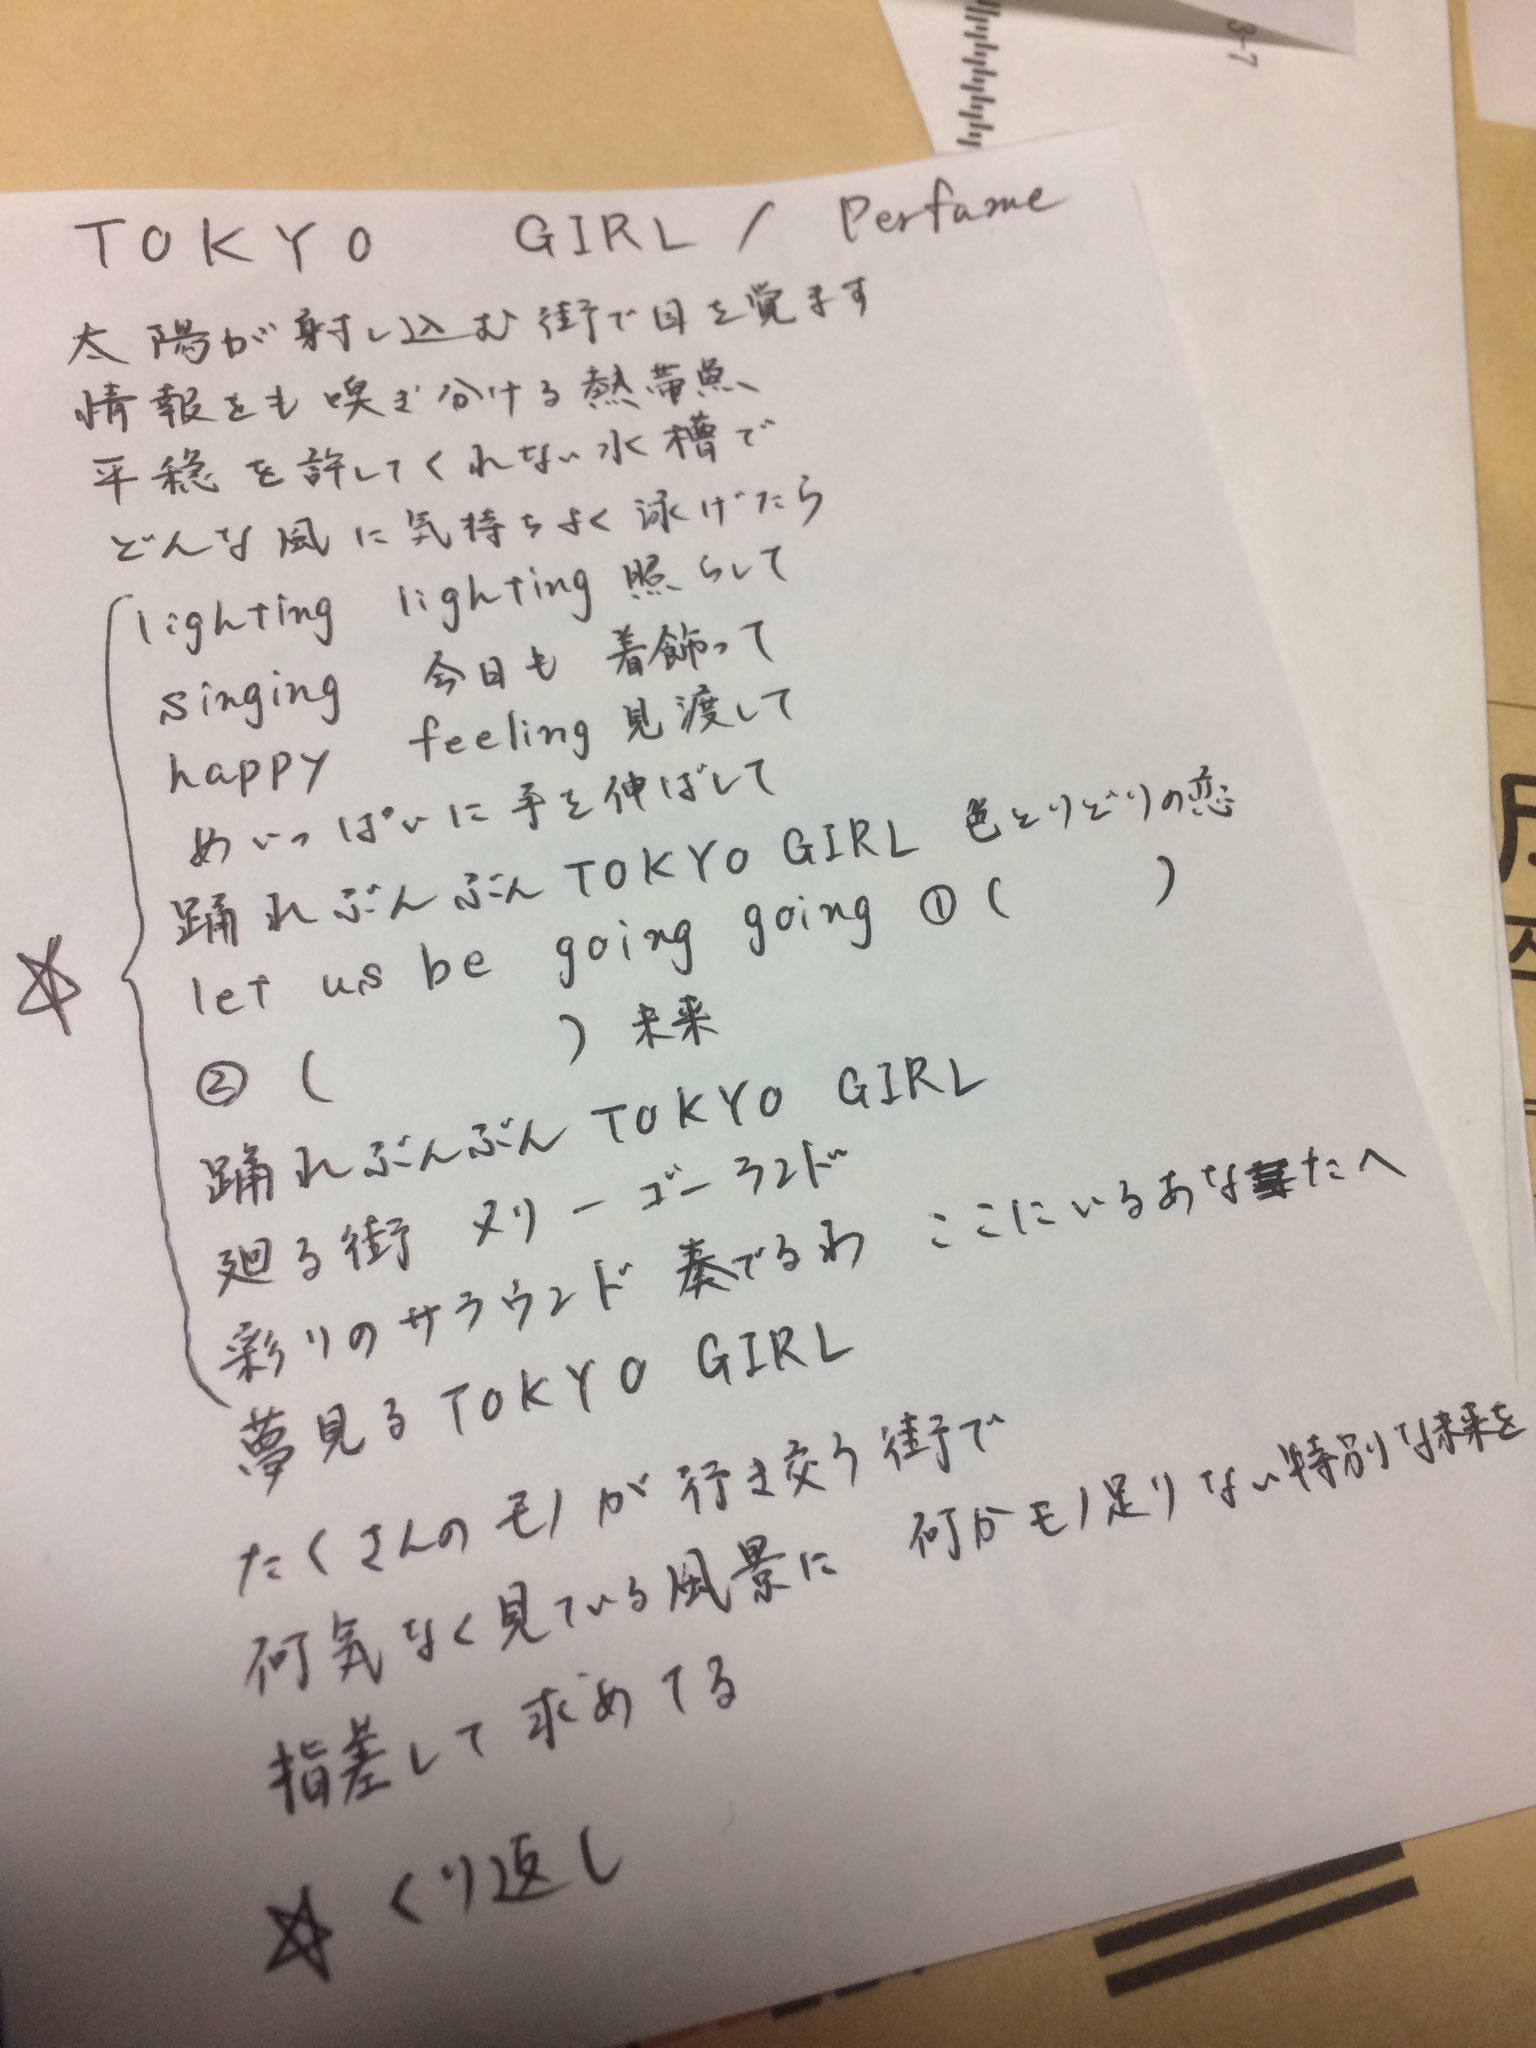 3-7
TOKYO GIRL / Perfame
太陽が射し込む街で目を覚ます
情報をも嗅ぎ分ける熱帯魚
平穏を許してくれない水槽で
どんな風に気持ちよく泳げたら
lighting lighting 照らして
singing 今日も 着飾って
happy feeling 見渡して
めいっぱいに手を伸ばして
踊れぶんぶん TOKYO GIRL 色とりどりの恋
let us be going going ①( )
②( ) 未来
踊れぶんぶん TOKYO GIRL
廻る街 メリーゴーランド
彩りのサラウンド 奏でるわ ここにいるあなたへ
夢見る TOKYO GIRL
たくさんのモノが行き交う街で
何気なく見ている風景に 何かモノ足りない特別な未来を
指差して求めてる
☆ くり返し